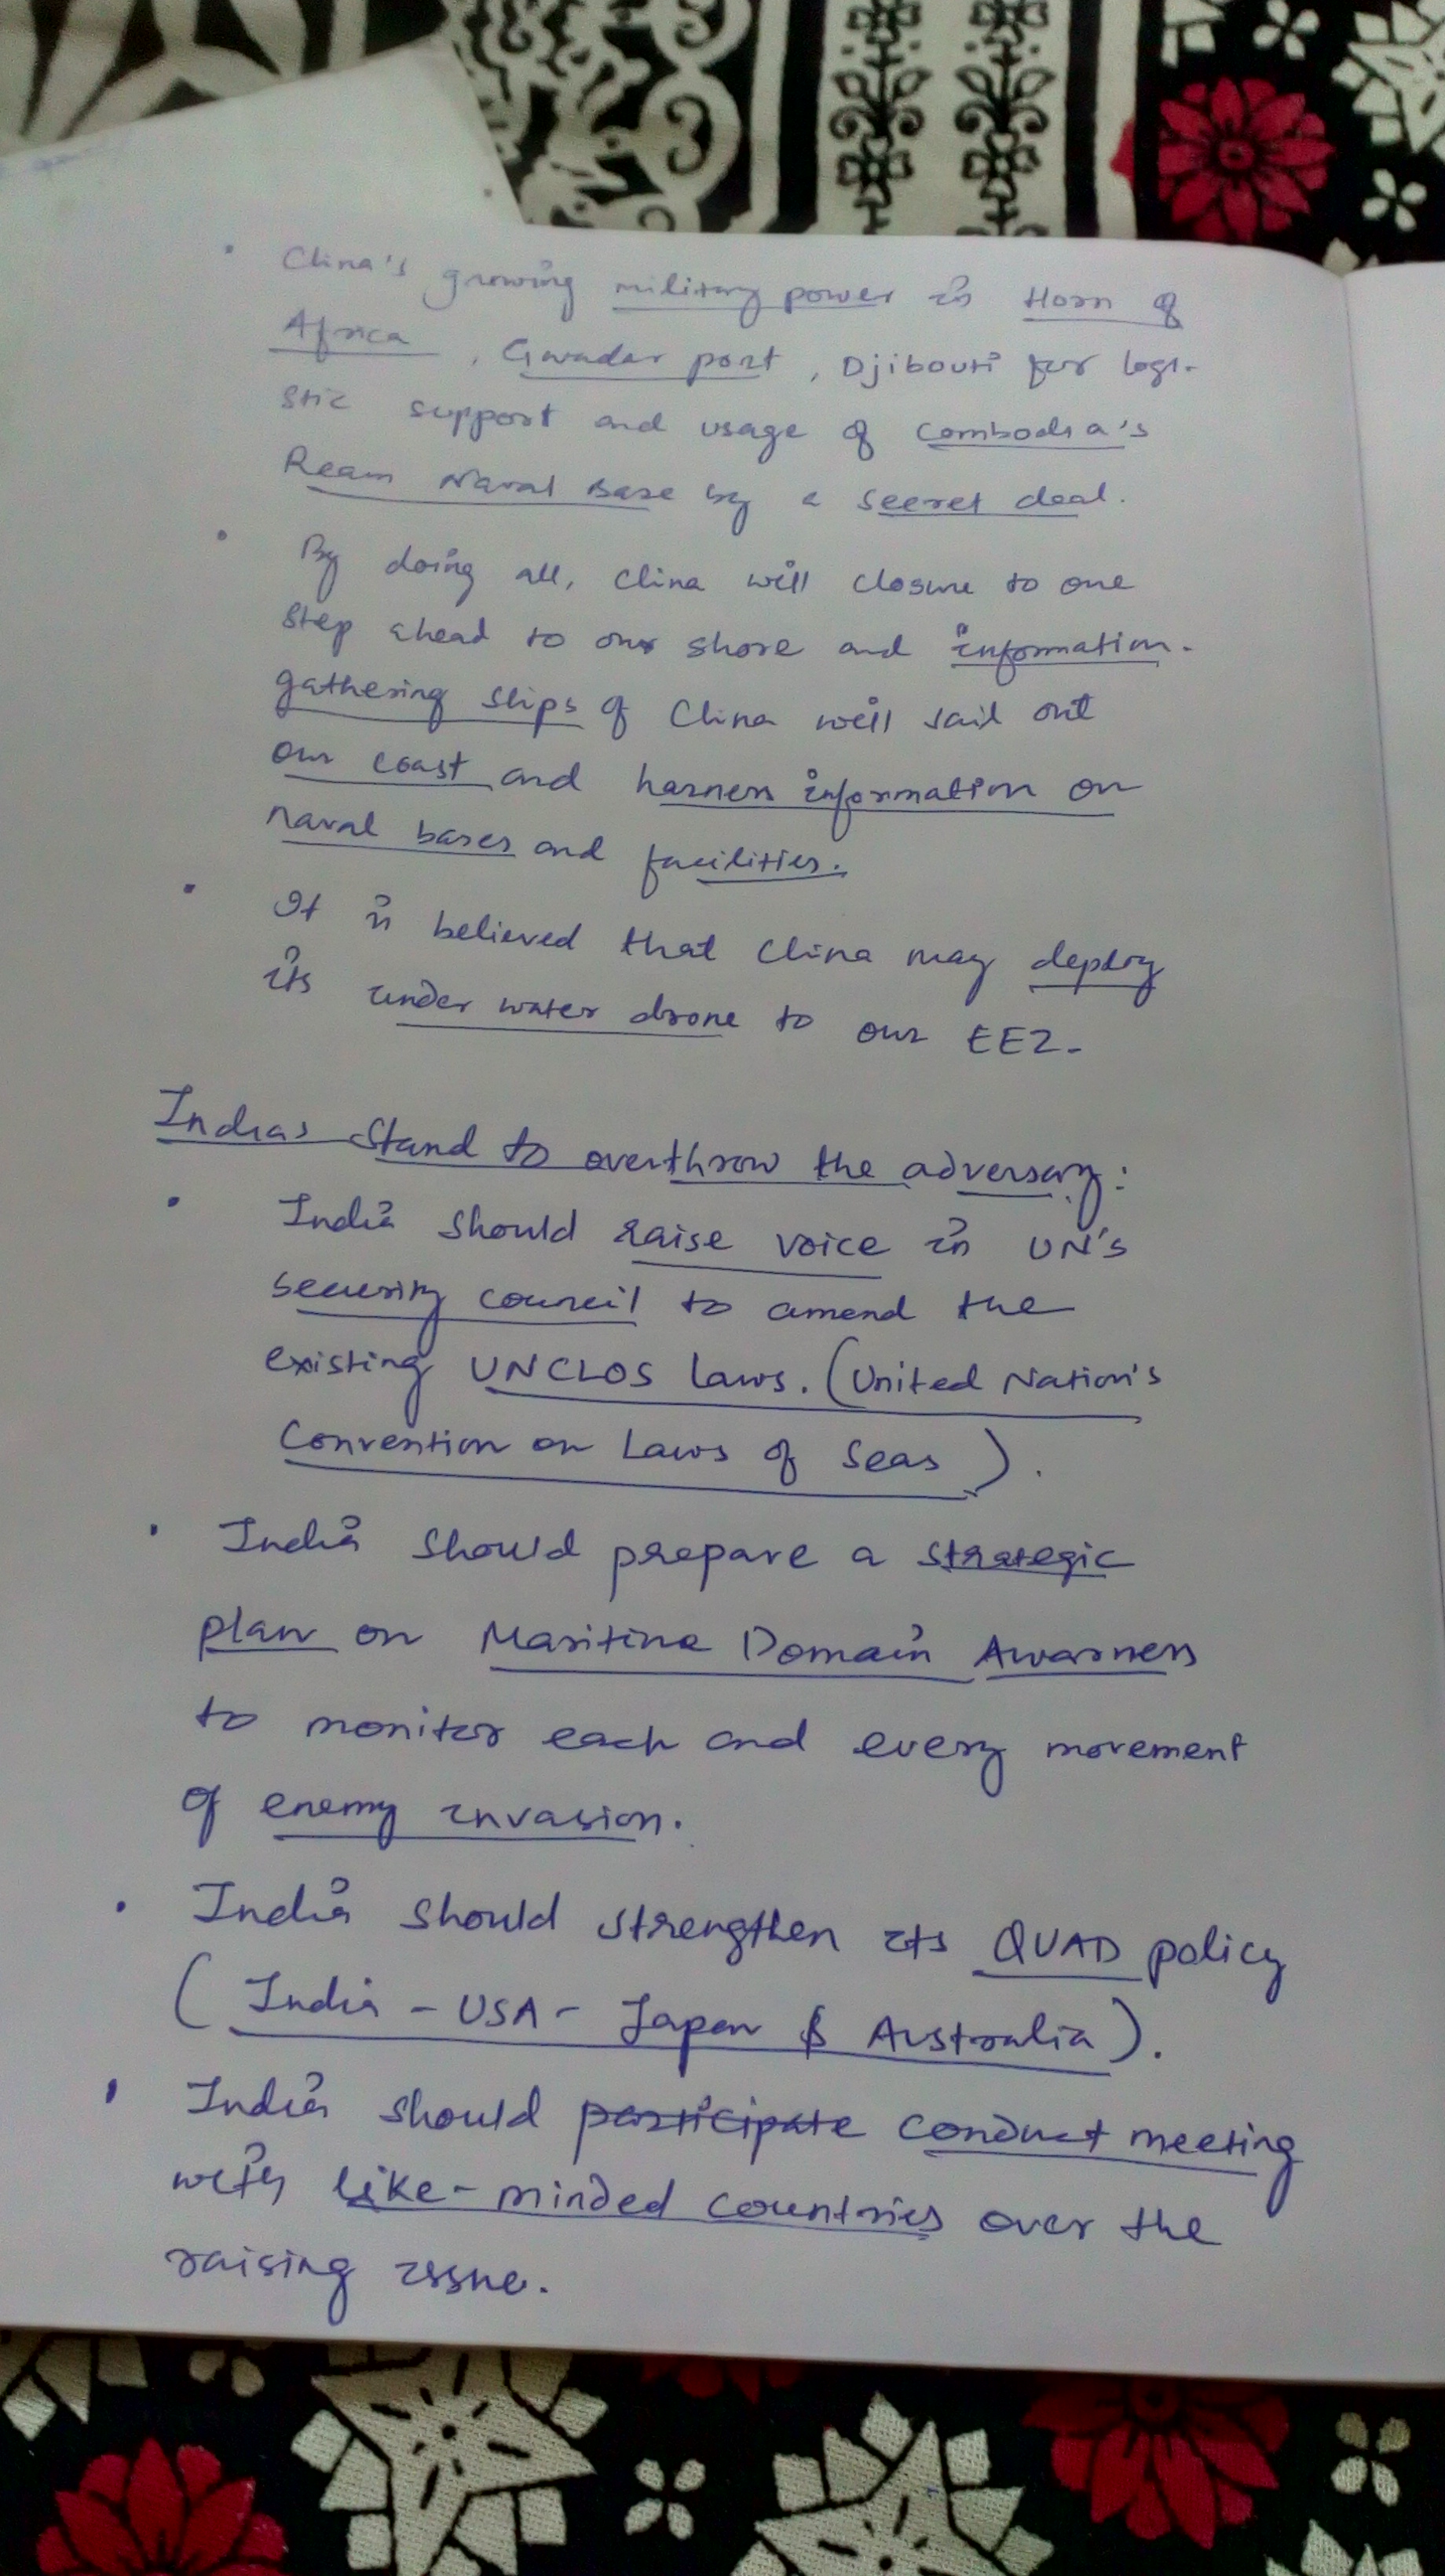 • China's growing military power in Horn of
Africa, Gwadar port, Djibouti for logi-
stic support and usage of Combodia's
Ream Naval Base by a secret deal.
• By doing all, China will closure to one
step ahead to our shore and information-
gathering ships of China will sail out
our coast and harness information on
naval bases and facilities.
• It is believed that China may deploy
its under water drone to our EEZ.
Indias stand to overthrow the adversary:
• India should raise voice in UN's
security council to amend the
existing UNCLOS laws. (United Nation's
Convention on Laws of Seas).
• India should prepare a strategic
plan on Maritime Domain Awarness
to monitor each and every movement
of enemy invasion.
• India should strengthen its QUAD policy
(India - USA - Japan & Australia).
• India should participate conduct meeting
with like-minded countries over the
raising issue.